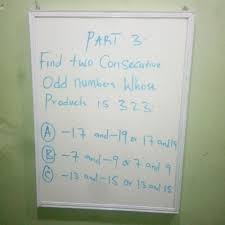 PART 3.
Find two Consecutive
Odd numbers Whose
Product is 323.
A -17 and -19 or 17 and 19
B -7 and -9 or 7 and 9
C -13 and -15 or 13 and 15